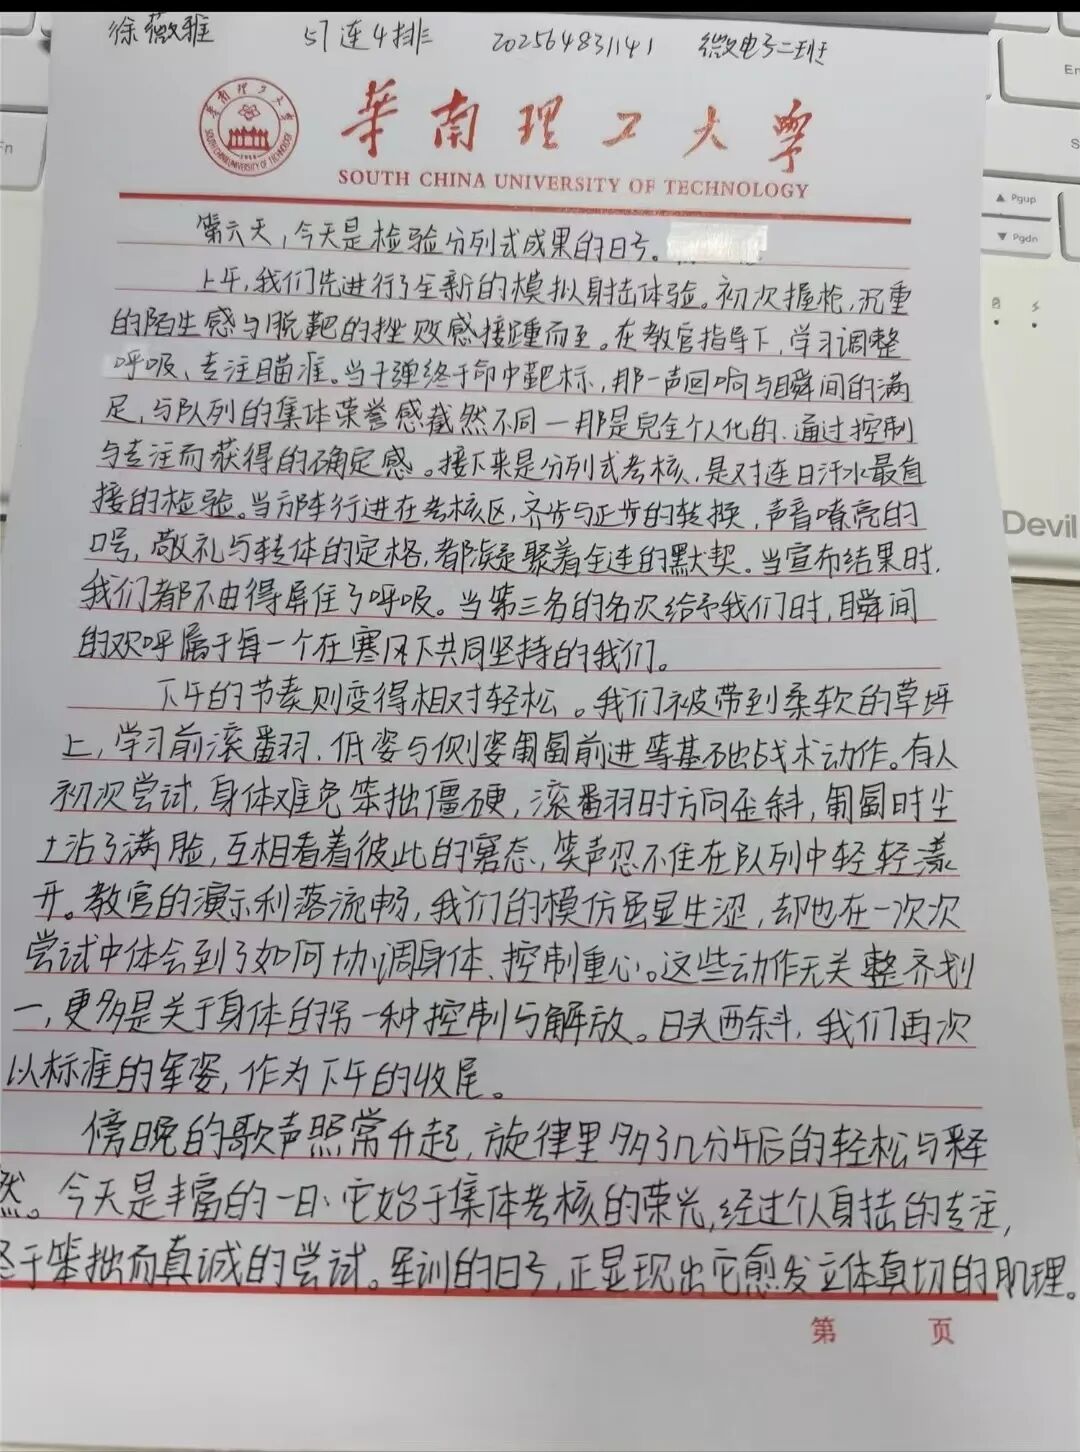 徐薇雅 57连4排 202564831141 微电子二班
华南理工大学
SOUTH CHINA UNIVERSITY OF TECHNOLOGY
第六天，今天是检验分列式成果的日子。
上午，我们先进行了全新的模拟射击体验。初次握枪，沉重
的陌生感与脱靶的挫败感接踵而至。在教官指导下，学习调整
呼吸、专注瞄准。当子弹终于命中靶标，那一声回响与瞬间的满
足，与队列的集体荣誉感截然不同一那是完全个人化的、通过控制
与专注而获得的确定感。接下来是分列式考核，是对连日汗水最直
接的检验。当方阵行进在考核区，齐步与正步的转换，声音嘹亮的
口号，敬礼与转体的定格，都凝聚着全连的默契。当宣布结果时，
我们都不由得屏住了呼吸。当第三名的名次给予我们时，瞬间
的欢呼属于每一个在寒风下共同坚持的我们。
下午的节奏则变得相对轻松。我们被带到柔软的草坪
上，学习前滚翻、低姿与侧姿匍匐前进等基础战术动作。有人
初次尝试，身体难免笨拙僵硬，滚翻时方向歪斜，匍匐时尘
土沾了满脸，互相看着彼此的窘态，笑声忍不住在队列中轻轻漾
开。教官的演示利落流畅，我们的模仿虽显生涩，却也在一次次
尝试中体会到了如何协调身体、控制重心。这些动作无关整齐划
一，更多是关于身体的另一种控制与解放。日头西斜，我们再次
以标准的军姿，作为下午的收尾。
傍晚的歌声照常升起，旋律里多了几分午后的轻松与释
然。今天是丰富的一日、它始于集体考核的荣光，经过个人射击的专注，
终于笨拙而真诚的尝试。军训的日子，正显现出它愈发立体真切的肌理。
第 页
Pgup
Pgdn
Devil
Fn